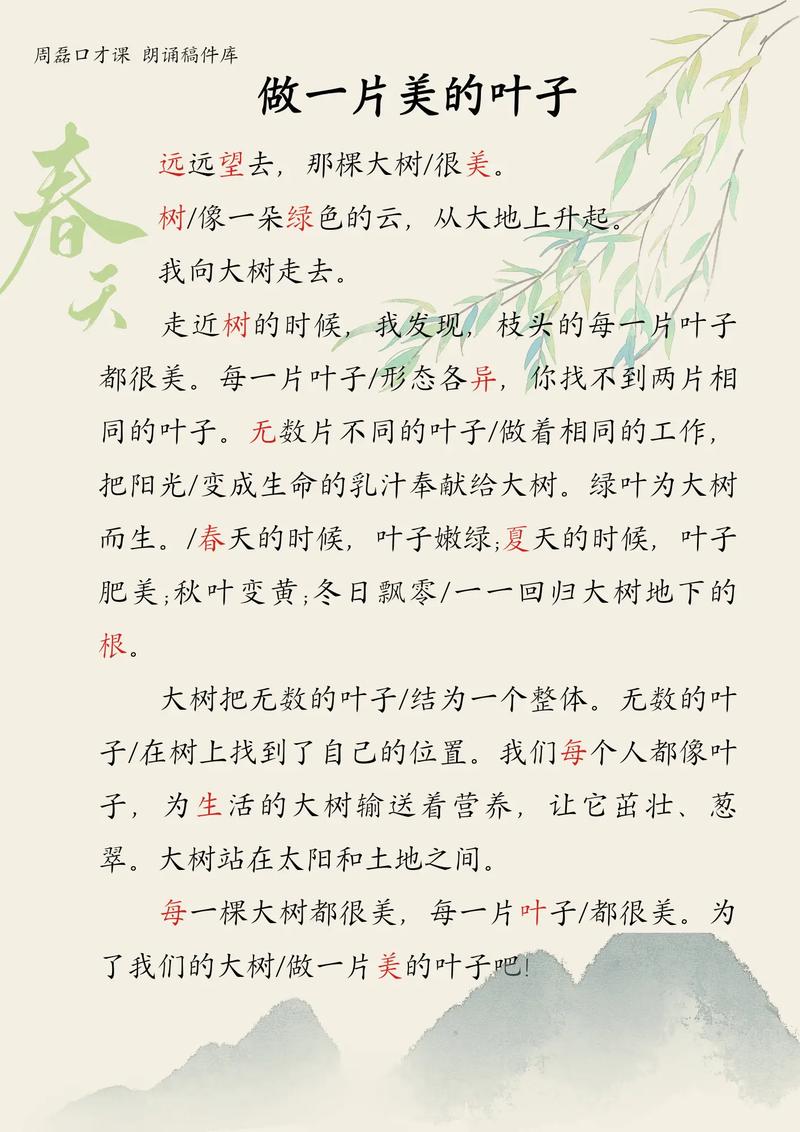 周磊口才课 朗诵稿件库
做一片美的叶子
春天
远远望去，那棵大树/很美。
树/像一朵绿色的云，从大地上升起。
我向大树走去。
走近树的时候，我发现，枝头的每一片叶子
都很美。每一片叶子/形态各异，你找不到两片相
同的叶子。无数片不同的叶子/做着相同的工作，
把阳光/变成生命的乳汁奉献给大树。绿叶为大树
而生。/春天的时候，叶子嫩绿;夏天的时候，叶子
肥美;秋叶变黄;冬日飘零/一一回归大树地下的
根。
大树把无数的叶子/结为一个整体。无数的叶
子/在树上找到了自己的位置。我们每个人都像叶
子，为生活的大树输送着营养，让它茁壮、葱
翠。大树站在太阳和土地之间。
每一棵大树都很美，每一片叶子/都很美。为
了我们的大树/做一片美的叶子吧!